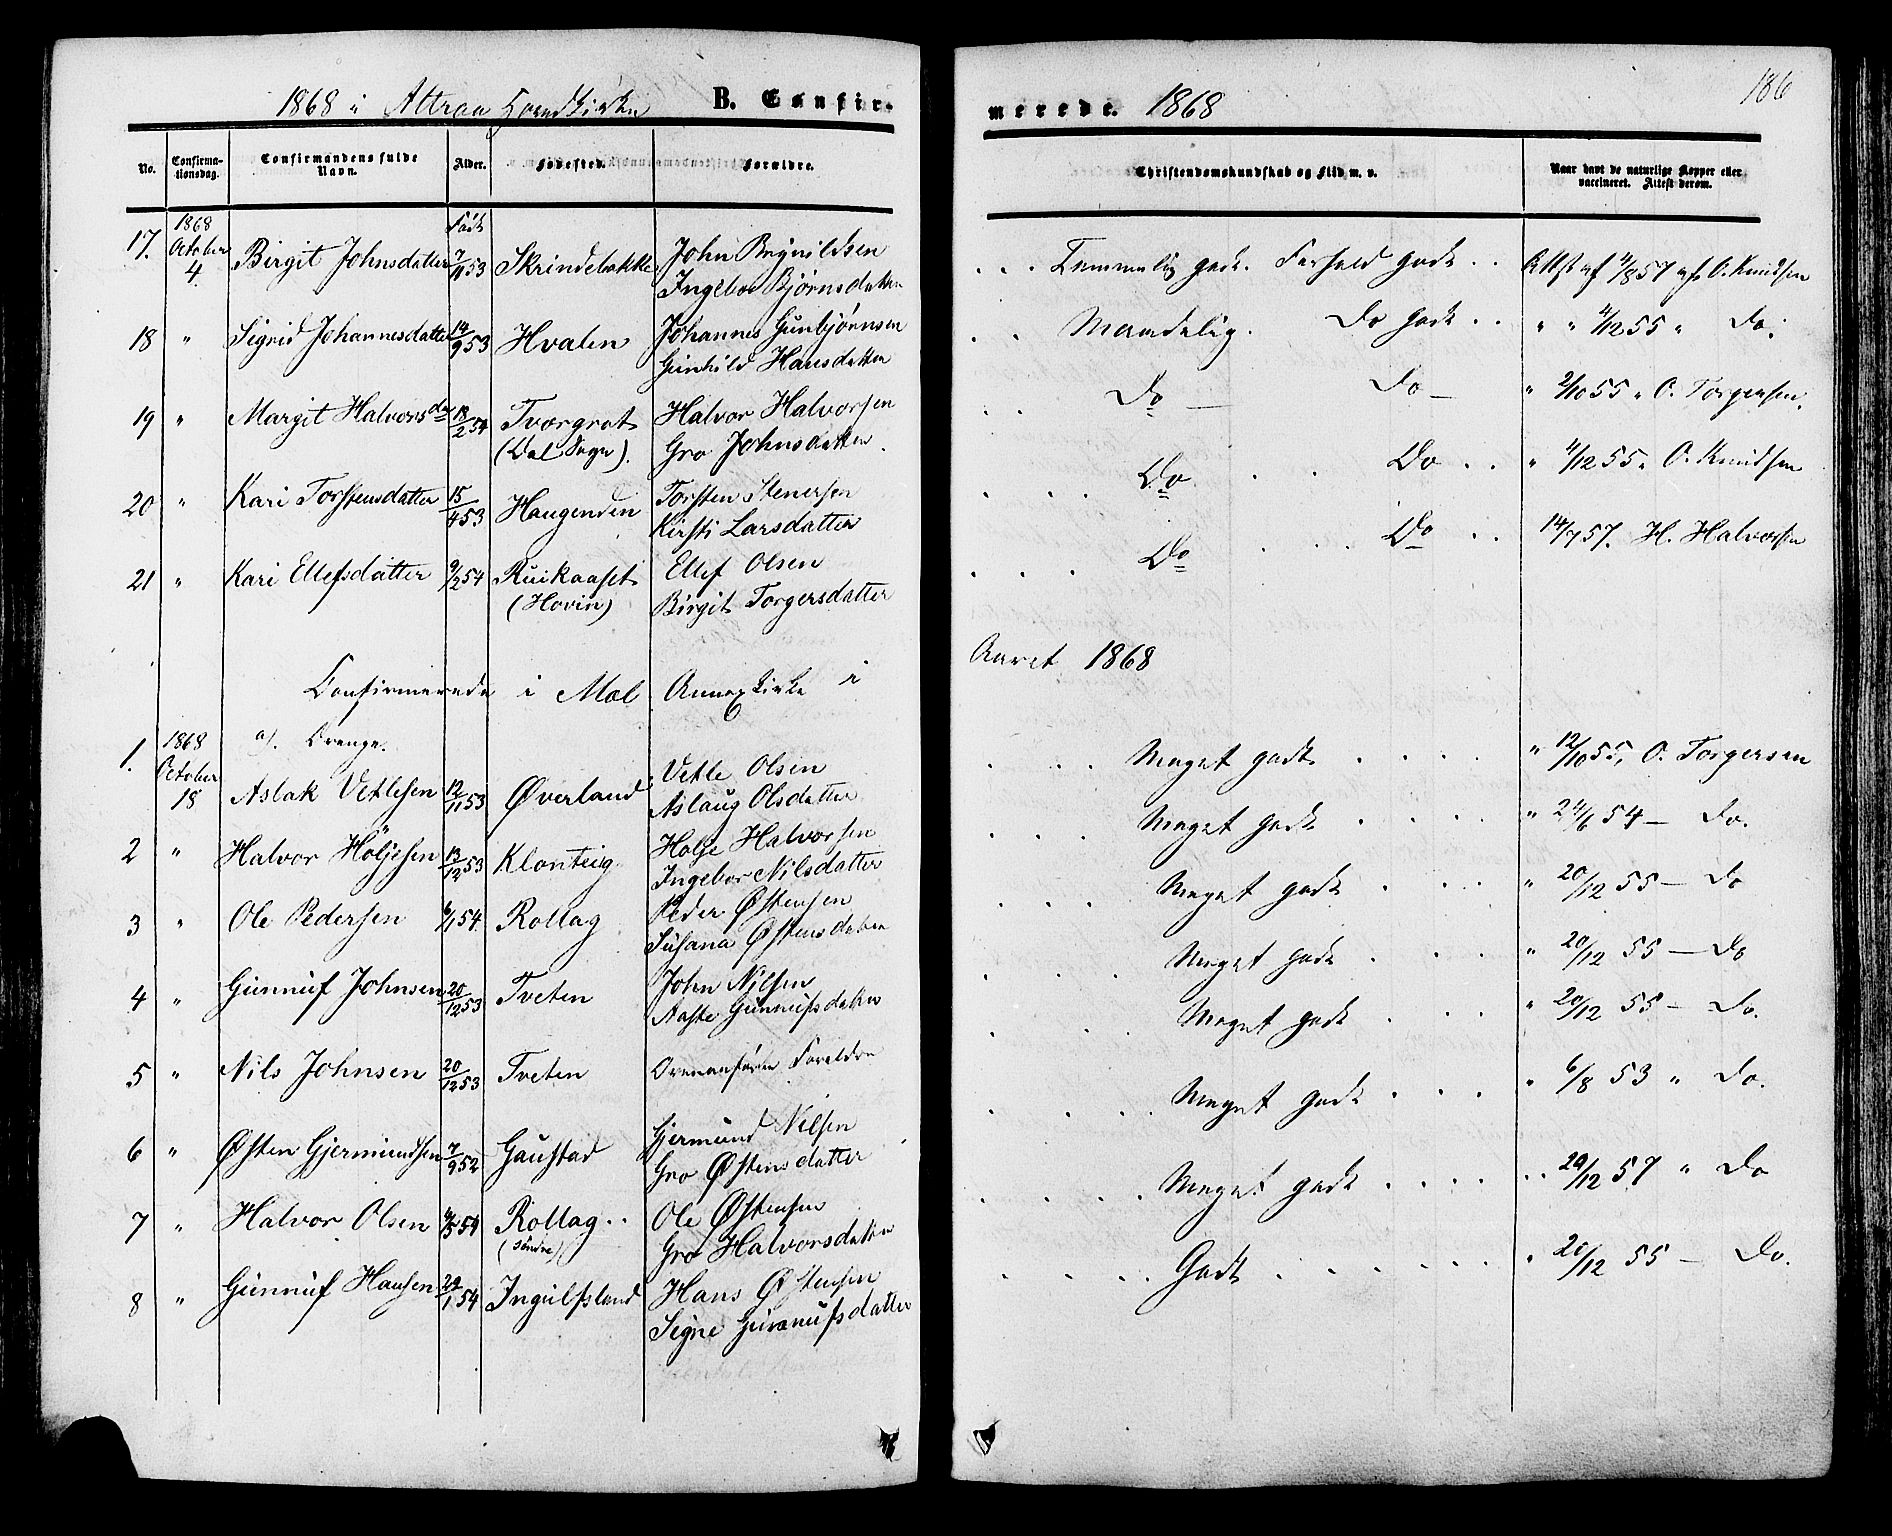 1868 i Attraa Hovedkirke B. Confir-
No. Confirma-tionsdag. Confirmandens fulde Navn. Alder. Fødested. Forældre.
17. 1868 October 4. Birgit Johnsdatter Født 7/11 53 Skrindebakke John Brynildsen
Ingebor Bjørnsdatter
18 " Sigrid Johannesdatter 14/9 53 Hvalen Johannes Gunbjørnsen
Gunhild Hansdatter
19 " Margit Halvorsdr 18/2 54 Tvergrot Halvor Halvorsen
(Dal Sogn). Gro Johnsdatter.
20 " Kari Torstensdatter 15/4 53 Haugenden Torsten Stenersen
Kirsti Larsdatter
21 " Kari Ellefsdatter 9/2 54 Ruikaaset Ellef Olsen
(Hovin) Birgit Torgersdatter
Confirmerede i Mæl Annexkirke i
a). Drenge.
1. 1868 October 18 Aslak Vetlesen 12/11 53 Øverland Vetle Olsen
Aslaug Olsdatter
2 " Halvor Höljesen 13/12 53 Klonteig Holje Halvorsen
Ingebor Nilsdatter
3 " Ole Pedersen 6/1 54 Rollag Peder Østensen
Susana Østensdatter
4 " Gunnuf Johnsen 20/12 53 Tveten John Nilsen
Aaste Gunnufsdatter
5 " Nils Johnsen 20/12 53 Tveten Ovenanførte Foreldre
6 " Østen Gjermundsen 7/9 52 Gaustad Gjermund Nilsen
Gro Østensdatter
7 " Halvor Olsen 4/5 54 Rollag Ole Østensen
(söndre) Gro Halvorsdatter
8 " Gunnuf Hansen 29/1 54 Ingulfsland Hans Østensen
Signe Gunnufsdatter
merede. 1868 186
Christendomskundskab og Flid m. v. Naar havt de naturlige Kopper eller vaccineret. Attest derom.
Temmelig godt. Forhold godt Attst af 4/8 57 af O. Knudsen
Maadelig. Do godt " " 4/12 55 " Do.
Do — Do — " 2/10 55 " O. Torgersen.
Do Do " 4/12 55 " O. Knudsen
Do Do 14/7 57. H. Halvorsen
Aaret 1868
Meget godt " 12/10 55, O. Torgersen
Meget godt " 24/6 54 — Do.
Meget godt " 20/12 55 — Do
Meget godt " 20/12 55 — Do
Meget godt " 20/12 55 — Do.
Meget godt " 6/8 53 " Do.
Meget godt 20/12 57 " Do
Godt " 20/12 55 — Do.